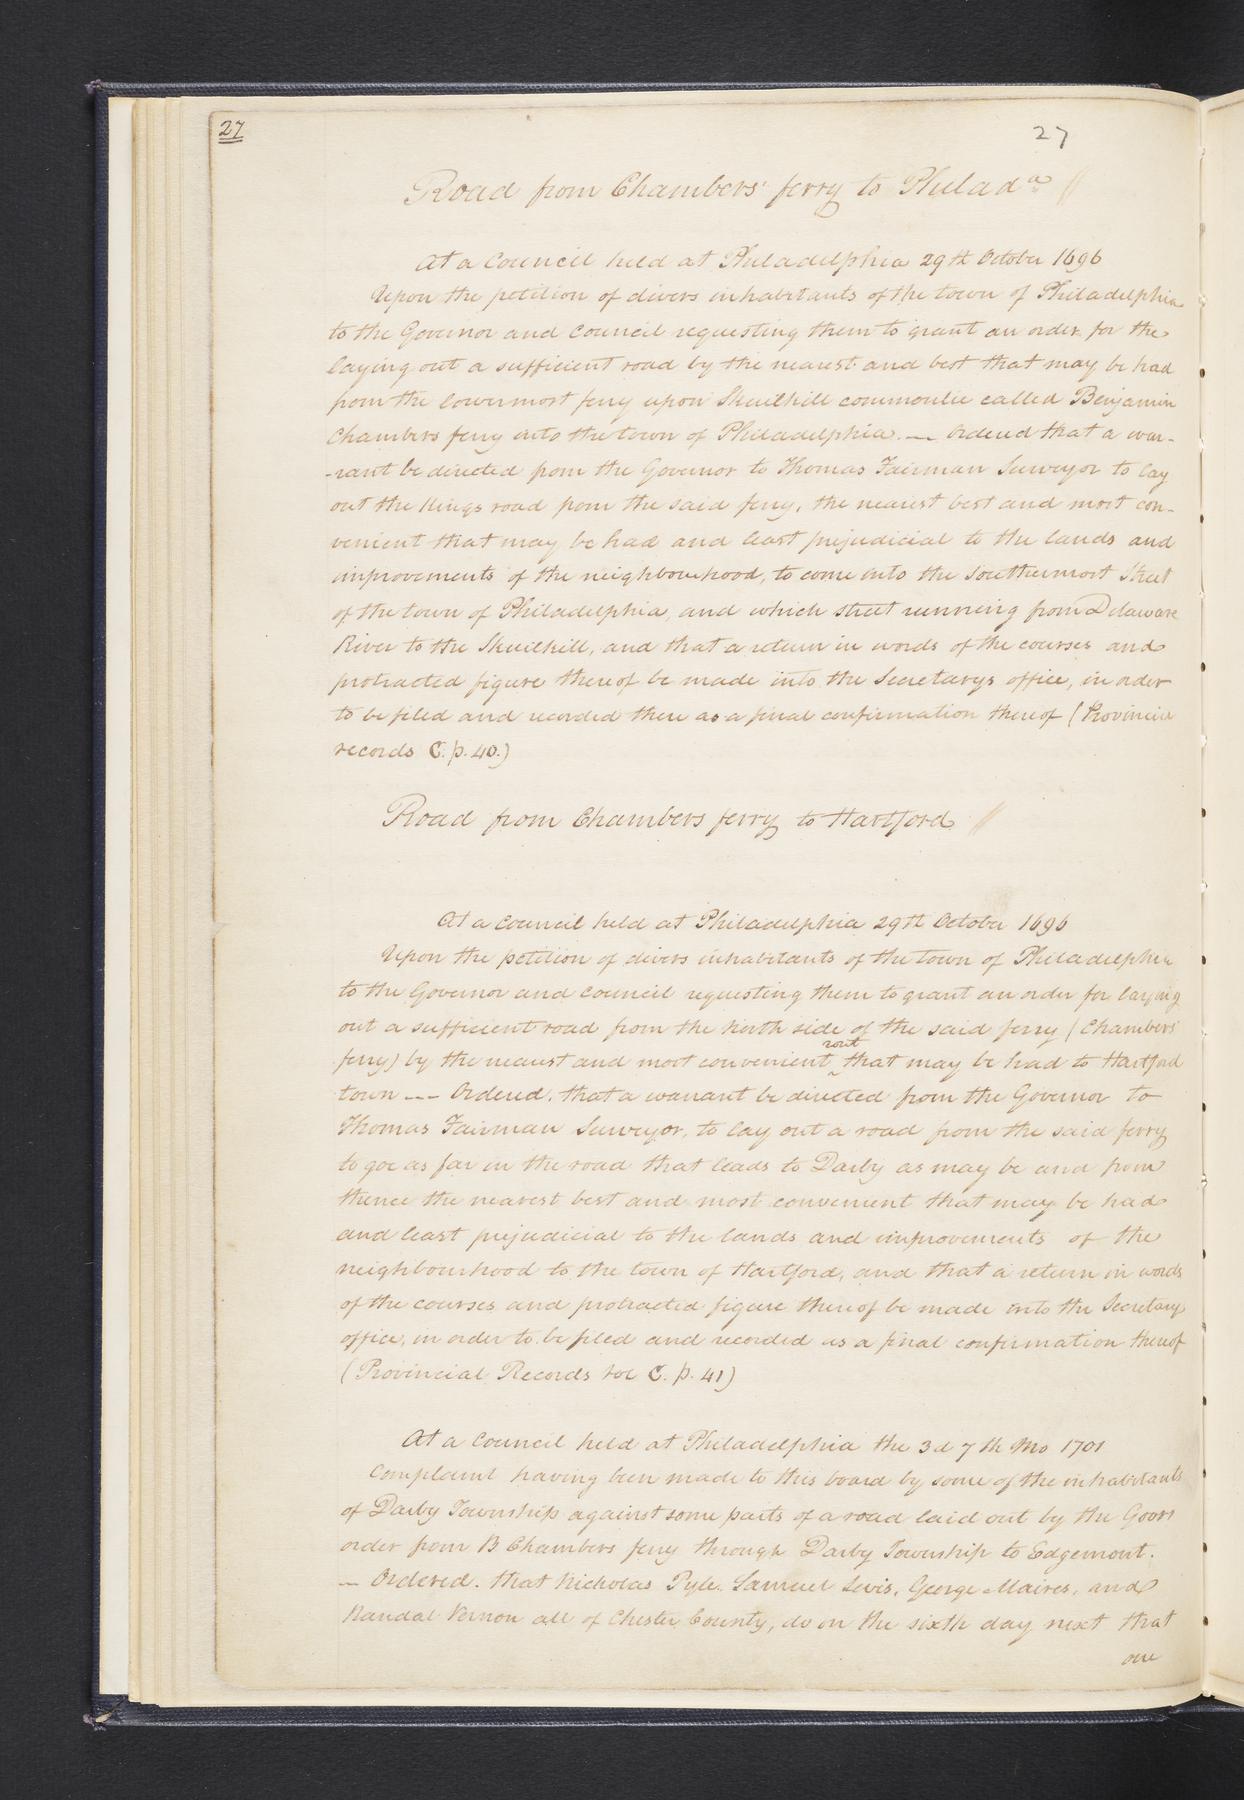 27
27
Road from Chambers' ferry to Philada
At a Council held at Philadelphia 29th October 1696
Upon the petition of divers inhabitants of the town of Philadelphia
to the Governor and Council requesting them to grant an order for the
laying out a sufficient road by the nearest and best that may be had
from the lowermost ferry upon Skuilkill commonlie called Benjamin
Chambers ferry into the town of Philadelphia. — Ordered that a war-
-rant be directed from the Governor to Thomas Fairman Surveyor to lay
out the Kings road from the said ferry, the nearest best and most con-
venient that may be had and least prejudicial to the lands and
improvements of the neighbourhood, to come into the Southermost Street
of the town of Philadelphia, and which street running from Delaware
River to the Skuilkill, and that a return in words of the courses and
protracted figure thereof be made into the Secretarys office, in order
to be filed and recorded there as a final confirmation thereof (Provincial
records C. p. 40.)
Road from Chambers ferry to Hartford
At a Council held at Philadelphia 29th October 1696
Upon the petition of divers inhabitants of the town of Philadelphia
to the Governor and Council requesting them to grant an order for laying
out a sufficient road from the North side of the said ferry (Chambers'
ferry) by the nearest and most convenient rout that may be had to Hartford
town --- Ordered. that a warrant be directed from the Governor to
Thomas Fairman Surveyor, to lay out a road from the said ferry
to goe as far in the road that leads to Darby as may be and from
thence the nearest best and most convenient that may be had
and least prejudicial to the lands and improvements of the
neighbourhood to the town of Hartford, and that a return in words
of the courses and protracted figure thereof be made into the Secretarys
office, in order to be filed and recorded as a final confirmation thereof
(Provincial Records vol C. p. 41)
At a Council held at Philadelphia the 3d 7th Mo 1701
Complaint having been made to this board by some of the inhabitants
of Darby Township against some parts of a road laid out by the Govrs
order from B Chambers ferry through Darby Township to Edgemont.
— Ordered. that Nicholas Pyle. Samuel Levis, George Maires, and
Randal Vernon all of Chester County, do on the sixth day next that